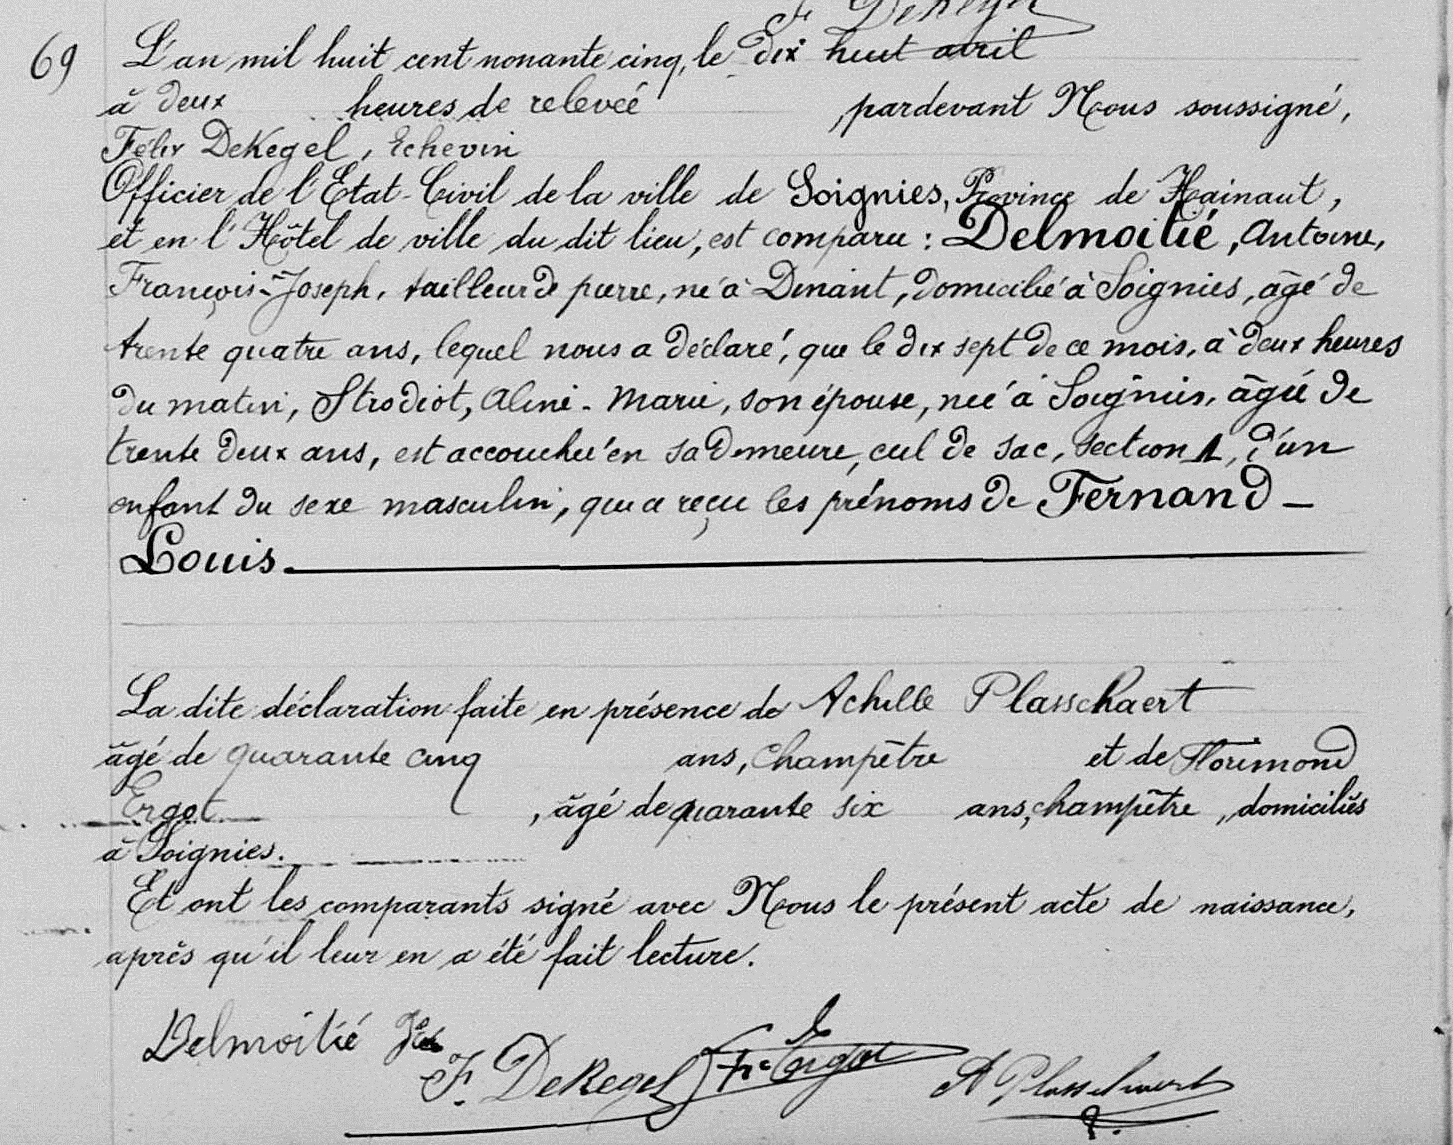 F. DeKegel
69 L'an mil huit cent nonante cinq, le dix huit avril
à deux heures de relevée, pardevant Nous soussigné,
Félix DeKegel, Echevin
Officier de l'Etat-Civil de la ville de Soignies, Province de Hainaut,
et en l'Hôtel de ville du dit lieu, est comparu : Delmoitié, Antoine,
François-Joseph, tailleur de pierre, né à Dinant, domicilié à Soignies, âgé de
trente quatre ans, lequel nous a déclaré, que le dix sept de ce mois, à deux heures
du matin, Strodiot, Aline-Marie, son épouse, née à Soignies, âgée de
trente deux ans, est accouchée en sa demeure, cul de sac, section 1, d'un
enfant du sexe masculin, qui a reçu les prénoms de Fernand-
Louis.
La dite déclaration faite en présence de Achille Plasschaert
âgé de quarante cinq ans, champêtre et de Florimond
Ergot, âgé de quarante six ans, champêtre, domiciliés
à Soignies.
Et ont les comparants signé avec Nous le présent acte de naissance,
après qu'il leur en a été fait lecture.
Delmoitié
F. DeKegel Ergot A Plasschaert